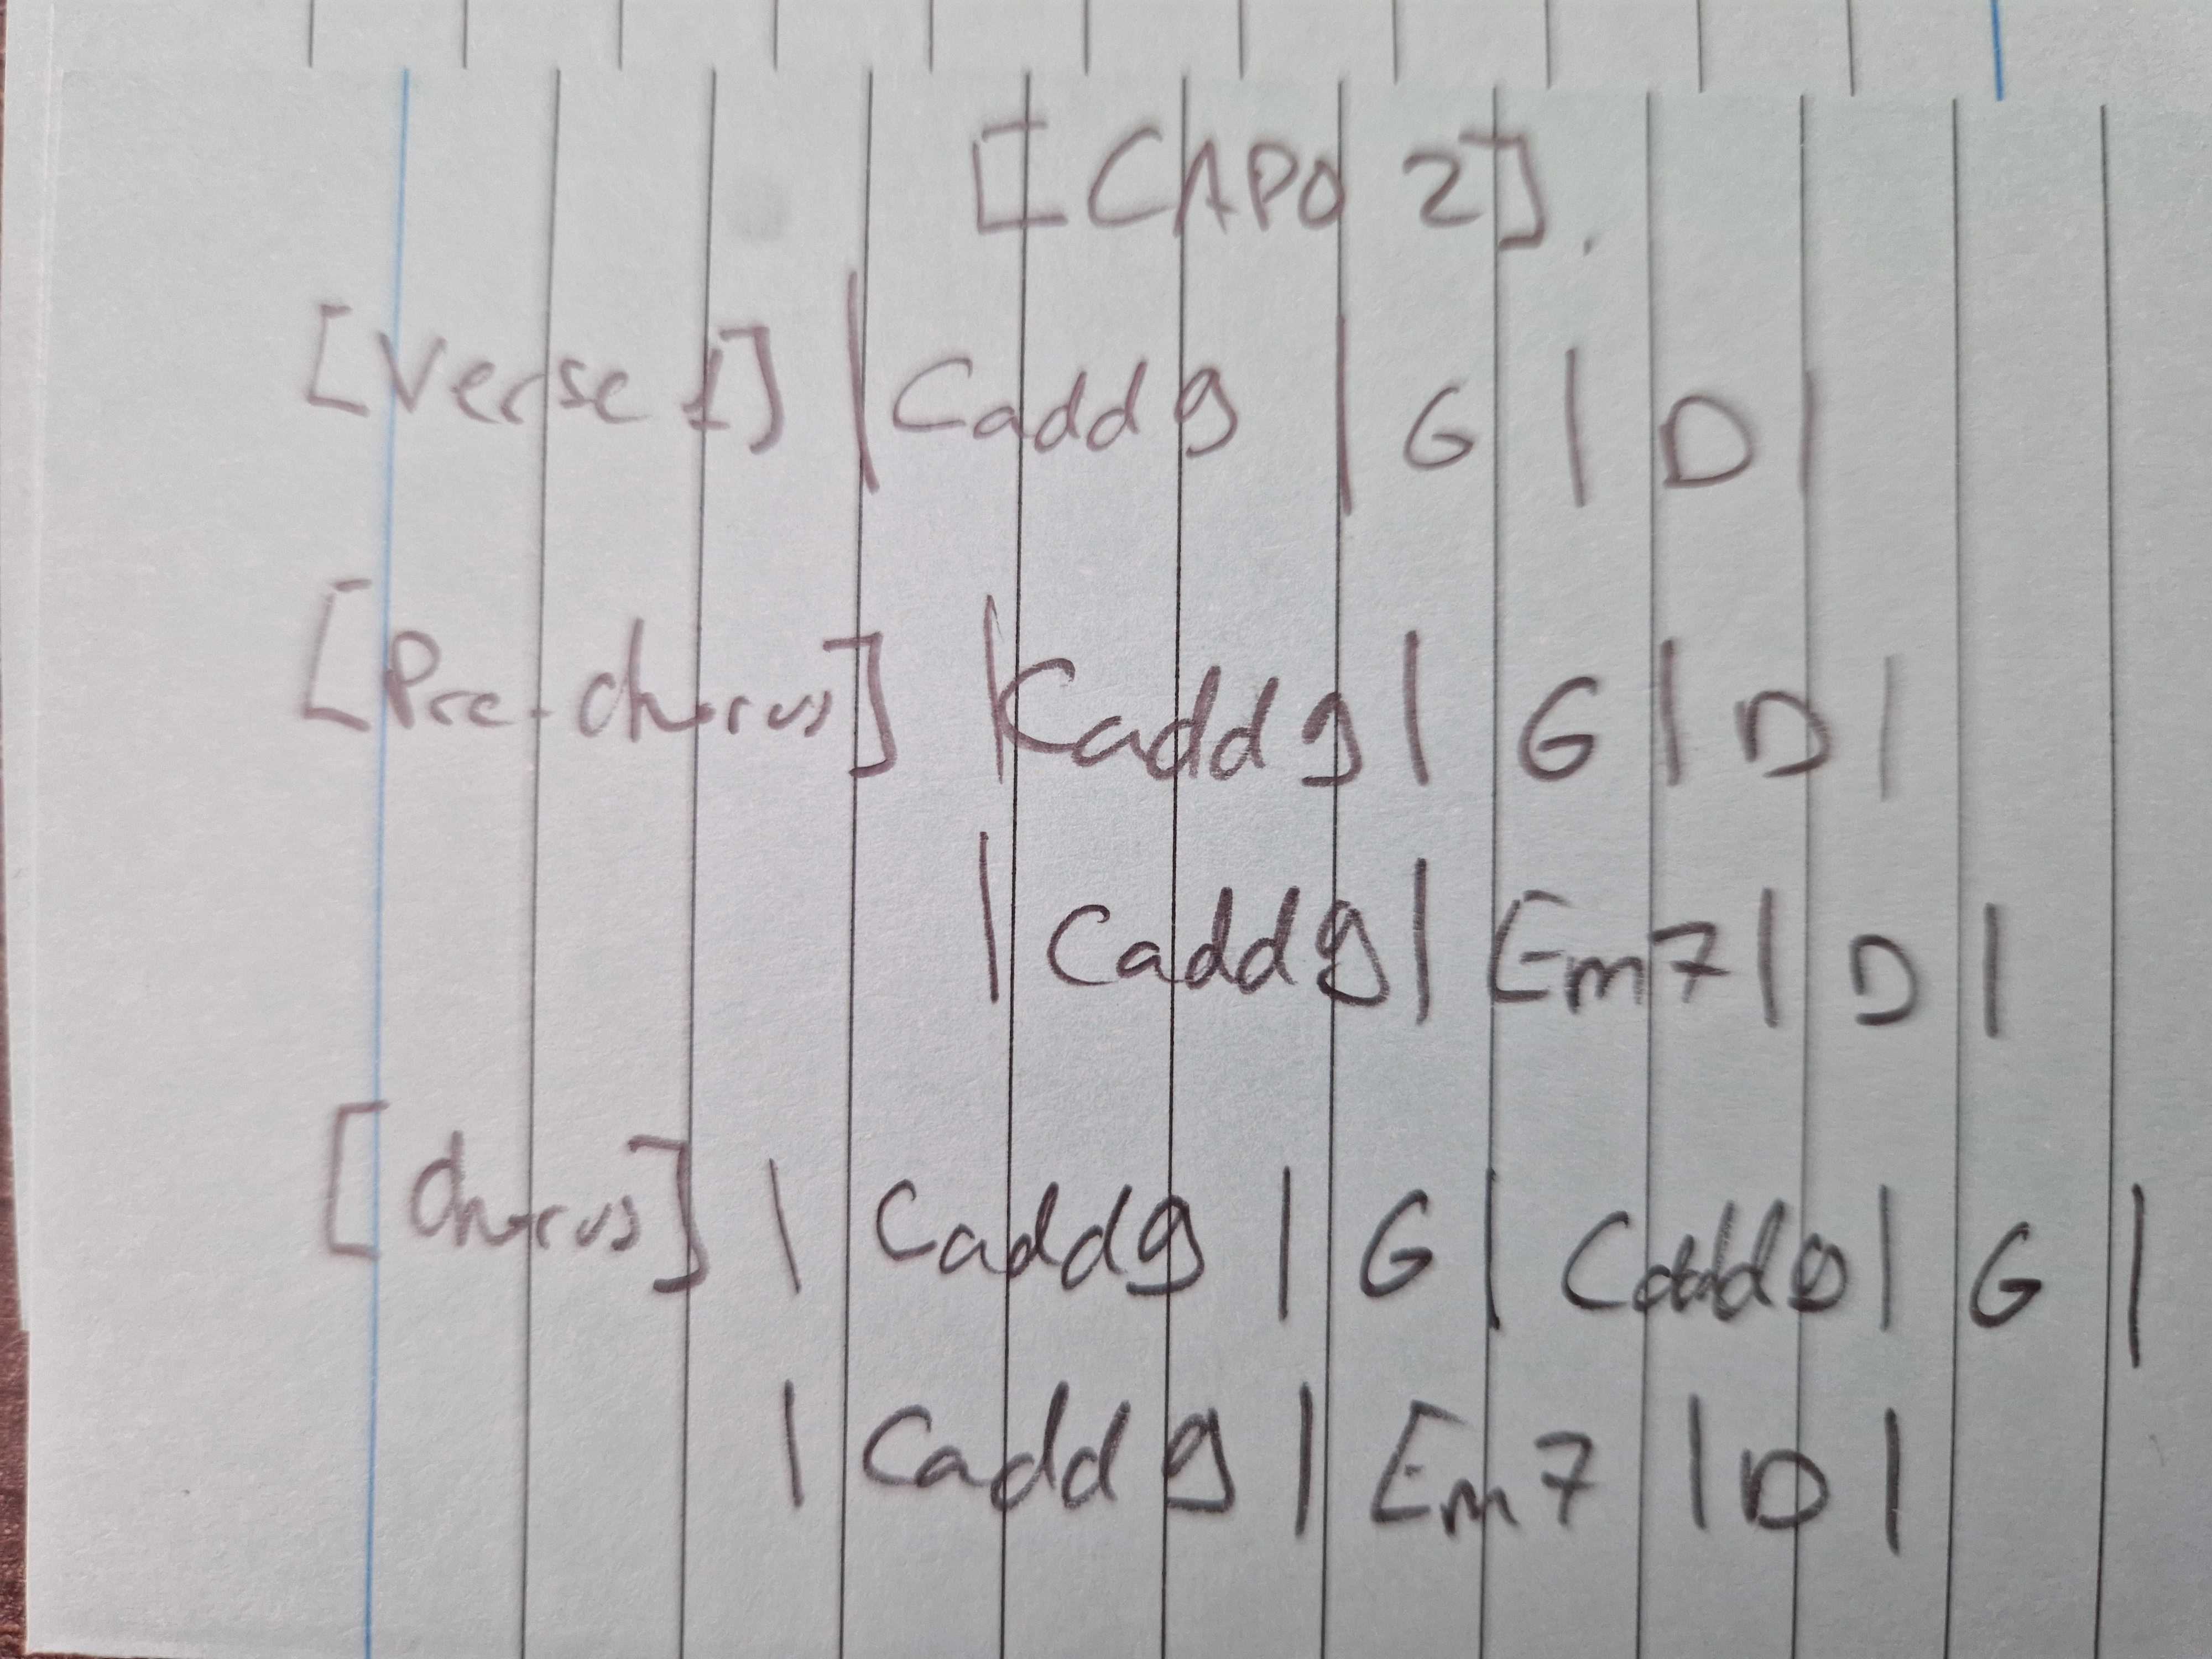 [CAPO 2].
[Verse 1] | Cadd9 | G | D |
[Pre-chorus] | Cadd9 | G | D |
| Cadd9 | Em7 | D |
[Chorus] | Cadd9 | G | Cadd9 | G |
| Cadd9 | Em7 | D |